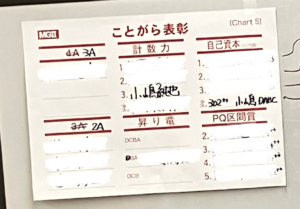 MGII
ことがら表彰
(Chart 5)
4A 3A
計数力
自己資本
1.
2.
3. 小嶋
次.
1.
2.
3.
次. 302 小嶋 DABC
3A 2A
昇り竜
PQ区間賞
DCBA
DCB
1.
2.
3.
4.
5.